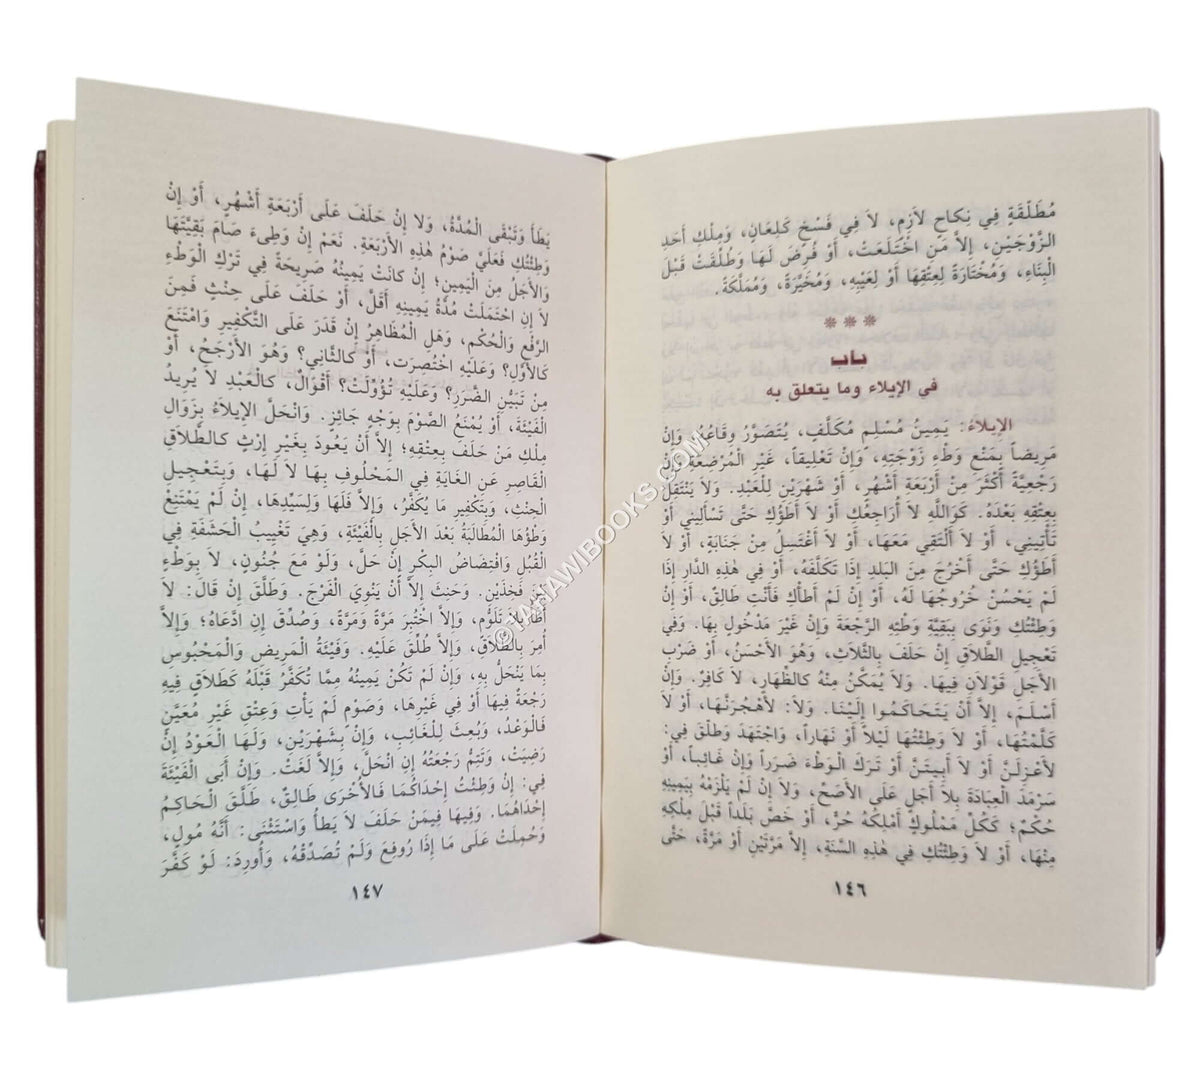 مُطَلَّقَةٍ فِي نِكَاحٍ لاَزِمٍ، لاَ فِي فَسْخٍ كَلِعَانٍ، وَمِلْكِ أَحَدِ
الزَّوْجَيْنِ، إِلاَّ مَنِ اخْتَلَعَتْ، أَوْ فُرِضَ لَهَا وَطُلِّقَتْ قَبْلَ
الْبِنَاءِ، وَمُخْتَارَةً لِعِتْقِهَا أَوْ لِعَيْبِهِ، وَمُخَيَّرَةً، وَمُمَلَّكَةً.
باب
في الإيلاء وما يتعلق به
الإِيلاَءُ: يَمِينُ مُسْلِمٍ مُكَلَّفٍ، يُتَصَوَّرُ وِقَاعُهُ، وَإِنْ
مَرِيضاً بِمَنْعِ وَطْءِ زَوْجَتِهِ، وَإِنْ تَعْلِيقاً، غَيْرِ الْمُرْضِعَةِ وَإِنْ
رَجْعِيَّةً أَكْثَرَ مِنْ أَرْبَعَةِ أَشْهُرٍ، أَوْ شَهْرَيْنِ لِلْعَبْدِ. وَلاَ يَنْتَقِلُ
بِعِتْقِهِ بَعْدَهُ. كَوَاللَّهِ لاَ أُرَاجِعُكِ أَوْ لاَ أَطَؤُكِ حَتَّى تَسْأَلِينِي أَوْ
تَأْتِينِي، أَوْ لاَ أَلْتَقِي مَعَهَا، أَوْ لاَ أَغْتَسِلُ مِنْ جَنَابَةٍ، أَوْ لاَ
أَطَؤُكِ حَتَّى أَخْرُجَ مِنَ الْبَلَدِ إِذَا تَكَلَّفَهُ، أَوْ فِي هٰذِهِ الدَّارِ إِذَا
لَمْ يَحْسُنْ خُرُوجُهَا لَهُ، أَوْ إِنْ لَمْ أَطَأْكِ فَأَنْتِ طَالِقٌ، أَوْ إِنْ
وَطِئْتُكِ وَنَوَى بِبَقِيَّةِ وَطْئِهِ الرَّجْعَةَ وَإِنْ غَيْرَ مَدْخُولٍ بِهَا. وَفِي
تَعْجِيلِ الطَّلاَقِ إِنْ حَلَفَ بِالثَّلاَثِ، وَهُوَ الأَحْسَنُ، أَوْ ضَرْبِ
الأَجَلِ قَوْلاَنِ فِيهَا. وَلاَ يُمَكَّنُ مِنْهُ كَالظِّهَارِ، لاَ كَافِرٌ. وَإِنْ
أَسْلَمَ، إِلاَّ أَنْ يَتَحَاكَمُوا إِلَيْنَا. وَلاَ: لأَهْجُرَنَّهَا، أَوْ لاَ
كَلَّمْتُهَا، أَوْ لاَ وَطِئْتُهَا لَيْلاً أَوْ نَهَاراً، وَاجْتَهَدَ وَطَلَّقَ فِي:
لأَعْزِلَنَّ أَوْ لاَ أَبِيتَنَّ أَوْ تَرَكَ الْوَطْءَ ضَرَراً وَإِنْ غَائِباً، أَوْ
سَرْمَدَ الْعِبَادَةَ بِلاَ أَجَلٍ عَلَى الأَصَحِّ، وَلاَ إِنْ لَمْ يَلْزَمْهُ بِيَمِينِهِ
حُكْمٌ؛ كَكُلِّ مَمْلُوكٍ أَمْلِكُهُ حُرٌّ، أَوْ خَصَّ بَلَداً قَبْلَ مِلْكِهِ
مِنْهَا، أَوْ لاَ وَطِئْتُكِ فِي هٰذِهِ السَّنَةِ، إِلاَّ مَرَّتَيْنِ أَوْ مَرَّةً، حَتَّى
١٤٦
يَطَأَ وَتَبْقَى الْمُدَّةُ، وَلاَ إِنْ حَلَفَ عَلَى أَرْبَعَةِ أَشْهُرٍ، أَوْ إِنْ
وَطِئْتُكِ فَعَلَيَّ صَوْمُ هٰذِهِ الأَرْبَعَةِ. نَعَمْ إِنْ وَطِىءَ صَامَ بَقِيَّتَهَا
وَالأَجَلُ مِنَ الْيَمِينِ؛ إِنْ كَانَتْ يَمِينُهُ صَرِيحَةً فِي تَرْكِ الْوَطْءِ
لاَ إِنِ احْتَمَلَتْ مُدَّةُ يَمِينِهِ أَقَلَّ، أَوْ حَلَفَ عَلَى حِنْثٍ فَمِنَ
الرَّفْعِ وَالْحُكْمِ، وَهَلِ الْمُظَاهِرُ إِنْ قَدَرَ عَلَى التَّكْفِيرِ وَامْتَنَعَ
كَالأَوَّلِ؟ وَعَلَيْهِ اخْتُصِرَت، أَوْ كَالثَّانِي؟ وَهُوَ الأَرْجَحُ، أَوْ
مِنْ تَبَيُّنِ الضَّرَرِ؟ وَعَلَيْهِ تُؤُوِّلَتْ؟ أَقْوَالٌ، كَالْعَبْدِ لاَ يُرِيدُ
الْفَيْئَةَ، أَوْ يُمْنَعُ الصَّوْمَ بِوَجْهٍ جَائِزٍ. وَانْحَلَّ الإِيلاَءُ بِزَوَالِ
مِلْكِ مَنْ حَلَفَ بِعِتْقِهِ؛ إِلاَّ أَنْ يَعُودَ بِغَيْرِ إِرْثٍ كَالطَّلاَقِ
الْقَاصِرِ عَنِ الْغَايَةِ فِي الْمَحْلُوفِ بِهَا لاَ لَهَا، وَبِتَعْجِيلِ
الْحِنْثِ، وَبِتَكْفِيرِ مَا يُكَفَّرُ، وَإِلاَّ فَلَهَا وَلِسَيِّدِهَا، إِنْ لَمْ يَمْتَنِعْ
وَطْؤُهَا الْمُطَالَبَةُ بَعْدَ الأَجَلِ بِالْفَيْئَةِ، وَهِيَ تَغْيِيبُ الْحَشَفَةِ فِي
الْقُبُلِ وَافْتِضَاضُ الْبِكْرِ إِنْ حَلَّ، وَلَوْ مَعَ جُنُونٍ، لاَ بِوَطْءٍ
بَيْنَ فَخِذَيْنِ. وَحَنِثَ إِلاَّ أَنْ يَنْوِيَ الْفَرْجَ. وَطَلَّقَ إِنْ قَالَ: لاَ
أَطَأُ بِلاَ تَلَوُّمٍ، وَإِلاَّ اخْتُبِرَ مَرَّةً وَمَرَّةً، وَصُدِّقَ إِنِ ادَّعَاهُ؛ وَإِلاَّ
أُمِرَ بِالطَّلاَقِ، وَإِلاَّ طُلِّقَ عَلَيْهِ. وَفَيْئَةُ الْمَرِيضِ وَالْمَحْبُوسِ
بِمَا يَنْحَلُّ بِهِ، وَإِنْ لَمْ تَكُنْ يَمِينُهُ مِمَّا تُكَفَّرُ قَبْلَهُ كَطَلاَقٍ فِيهِ
رَجْعَةٌ فِيهَا أَوْ فِي غَيْرِهَا، وَصَوْمٍ لَمْ يَأْتِ وَعِتْقٍ غَيْرِ مُعَيَّنٍ
فَالْوَعْدُ، وَبُعِثَ لِلْغَائِبِ، وَإِنْ بِشَهْرَيْنِ، وَلَهَا الْعَوْدُ إِنْ
رَضِيَتْ، وَتَتِمُّ رَجْعَتُهُ إِنِ انْحَلَّ، وَإِلاَّ لَغَتْ. وَإِنْ أَبَى الْفَيْئَةَ
فِي: إِنْ وَطِئْتُ إِحْدَاكُمَا فَالأُخْرَى طَالِقٌ، طَلَّقَ الْحَاكِمُ
إِحْدَاهُمَا. وَفِيهَا فِيمَنْ حَلَفَ لاَ يَطَأُ وَاسْتَثْنَى: أَنَّهُ مُولٍ،
وَحُمِلَتْ عَلَى مَا إِذَا رُوفِعَ وَلَمْ تُصَدِّقْهُ، وَأُورِدَ: لَوْ كَفَّرَ
١٤٧
©TAHAWIBOOKS.COM